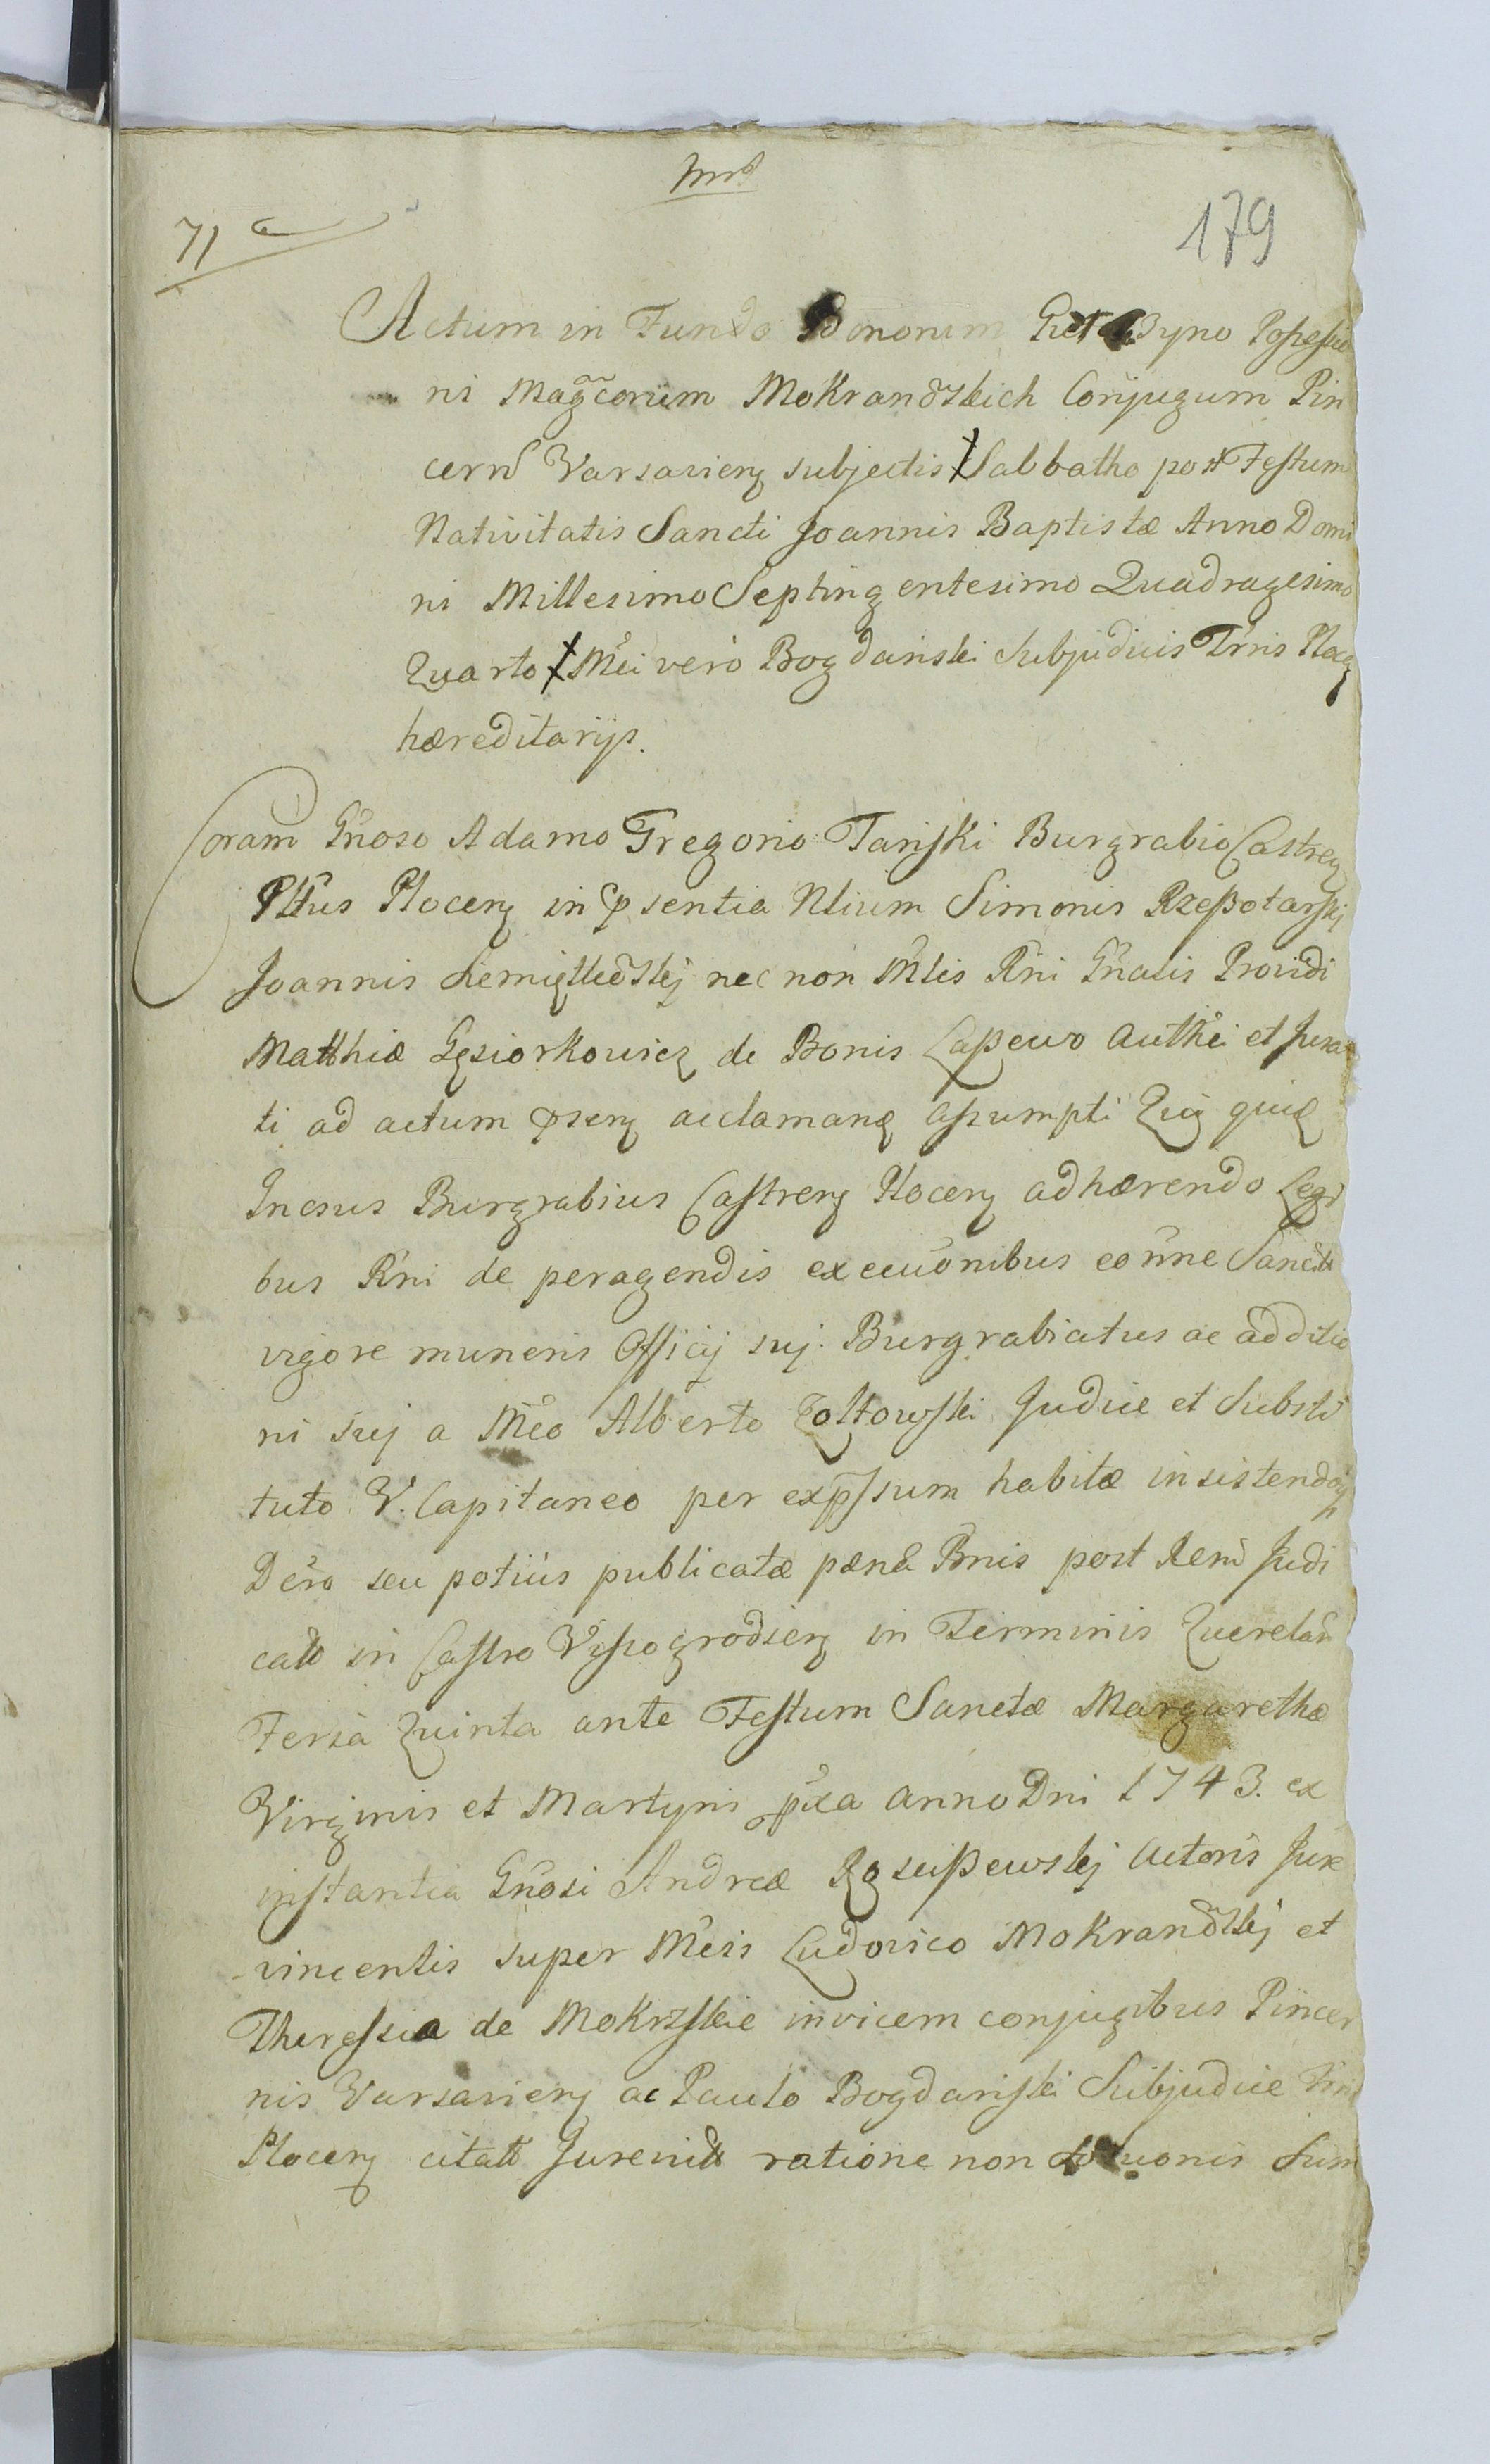 71
179
Actum in Fundo Bonorum Possessio
ni Magcorum Mokranoskich Conjugum Pin
cern Varsavien subjectis Sabbatho post Festum
Nativitatis Sancti Joannis Baptistæ Anno Domi
ni Millesimo Septingentesimo Quadragesimo
Quarto Mci vero Bogdański Subjudicis Trris Ploc
hæreditarijs.
Coram Gnoso Adamo Gregorio Tański Burgrabio Castren
Plocen in psentia Nlium Simonis Rzeszotarskj
Joannis nec non Mlis Rni Gnalis Providi
Matthiæ Gęsiorkowicz de Bonis Łaszewo Authci et Jura
ti ad actum psen acclaman assumpti Qui quid
Gnosus Burgrabius Castren Plocen adhærendo Legi
bus Rni de peragendis execuonibus eonne Sancit
vigore muneris Officij suj Burgrabiatus ac additio
ni suj a Mco Alberto Zołtowski Judice et Substi
tuto V. Capitaneo per expssum habitæ insistendoq
Dcro seu potius publicatæ pænæ Bnis post Rem Judi
catt in Castro Vyssogrodien in Terminis Querelar
Feria Quinta ante Festum Sanctæ Margarethæ
Virginis et Martyris pxa Anno Dni 1743. ex
instantia Gnosi Andreæ Rosciszewskj Actoris Jure
vincentis super Mcis Ludovico Mokranoskj et
Theressia de Mokrzskie invicem conjugibus Pincer
nis Varsavien ac Paulo Bogdański Subjudice Trris
Plocen citatt Jurevictt ratione non soluonis Sum